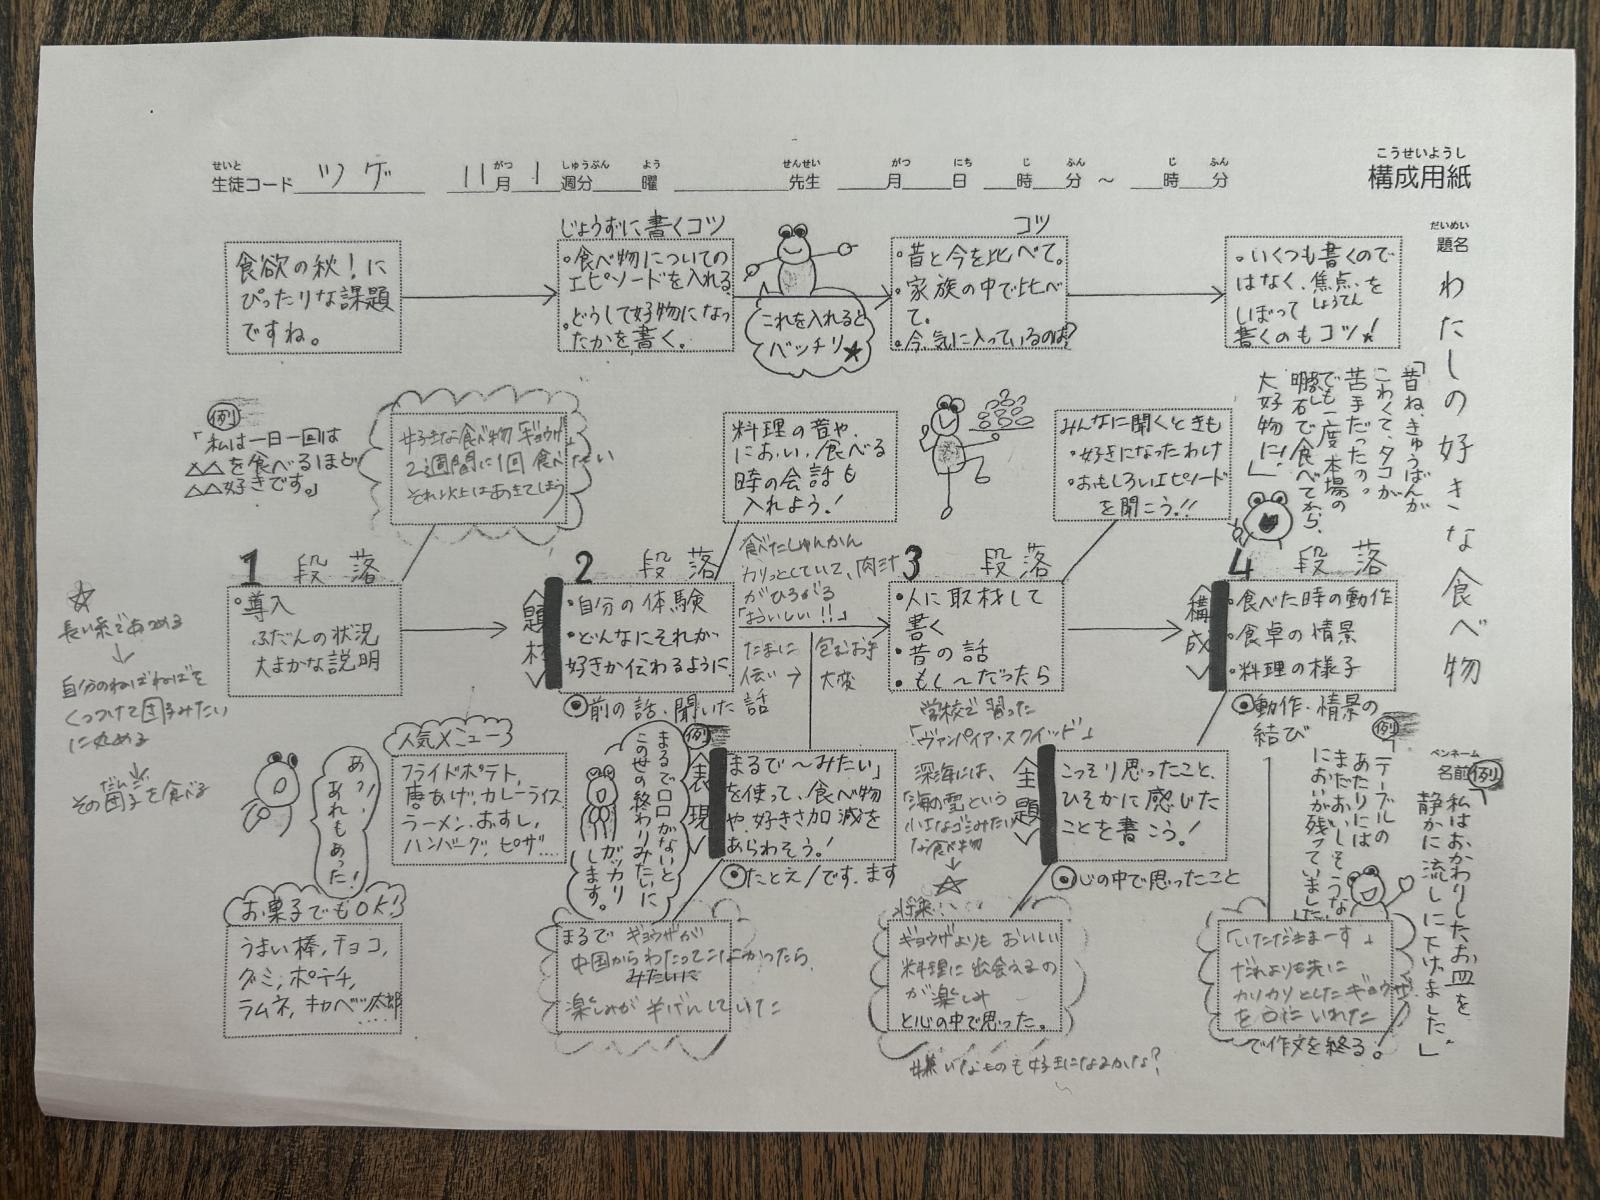 こうせいようし
構成用紙
せいと がつ しゅうぶん よう せんせい がつ にち じ ふん じ ふん
生徒コード ツゲ 11月 1週分 曜 先生 月 日 時 分 ～ 時 分
だいめい
題名
わたしの好きな食べ物
食欲の秋！に
ぴったりな課題
ですね。
じょうずに書くコツ
・食べ物についての
エピソードを入れる
・どうして好物になっ
たかを書く。
これを入れると
バッチリ★
コツ
・昔と今を比べて。
・家族の中で比べ
て。
・今、気に入っているのは？
・いくつも書くので
はなく、焦点を
しょうてん
しぼって
書くのもコツ！
「昔ね、きゅうばんが
こわくて、タコが
苦手だったの。
でも一度、本場の
明石で食べてから、
大好物に！」
例
「私は一日一回は
△△を食べるほど
△△好きです。」
好きな食べ物「ギョウザ」
2週間に1回食べたい
それ以上はあきてしまう
料理の音や、
におい、食べる
時の会話も
入れよう！
みんなに聞くときも
・好きになったわけ
・おもしろいエピソード
を聞こう!!
1 段落
・導入
ふだんの状況
大まかな説明
☆
長い糸であつめる
↓
自分のねばねばを
くっつけて団子みたい
に丸める
だんご
その団子を食べる
＜題材＞
2 段落
・自分の体験
・どんなにそれが
好きか伝わるように
◉前の話・聞いた話
食べたしゅんかん
カリッとしていて、肉汁
がひろがる
「おいしい!!」
たまに
伝い→
包むお手
大変
3 段落
・人に取材して
書く
・昔の話
・もし～だったら
学校で習った
「ヴァンパイア・スクイッド」
＜構成＞
4 段落
・食べた時の動作
・食卓の情景
・料理の様子
◉動作・情景の
結び
あっ、
あれもあった！
人気メニュー
フライドポテト、
唐あげ、カレーライス
ラーメン、おすし、
ハンバーグ、ピザ…
お菓子でもOK！
うまい棒、チョコ、
グミ、ポテチ、
ラムネ、キャベツ太郎
……
例
まるで〇〇がないと
この世の終わりみたいに
ガッカリ
します。
＜表現＞
「まるで～みたい」
を使って、食べ物
や、好きさ加減を
あらわそう！
◉たとえ/です、ます
まるで ギョウザが
中国からわたってこなかったら
みたいに
楽しみが半げんしていた
深海には、
「海の雪」という
小さなゴミみたい
な食べ物
↓
☆
＜主題＞
こっそり思ったこと、
ひそかに感じた
ことを書こう！
◉心の中で思ったこと
将来…
ギョウザよりも おいしい
料理に出会えるの
が楽しみ
と心の中で思った。
嫌いなものも好きになるかな？
例
テーブルの
あたりには
まだおいしそうな
においが残っていました。
「いただきまーす」
だれよりも先に
カリカリとしたギョウザ
を口にいれた
で作文を終る！
ペンネーム
名前
例
「私はおかわりしたお皿を
静かに流しに下げました。」